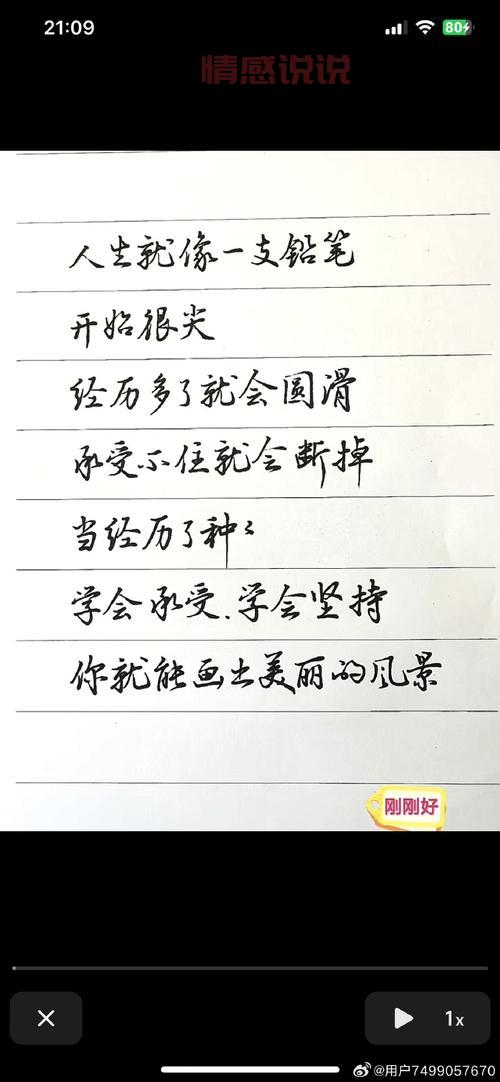 21:09
80
情感说说
人生就像一支铅笔
开始很尖
经历多了就会圆滑
承受不住就会断掉
当经历了种々
学会承受.学会坚持
你就能画出美丽的风景
刚刚好
1x
@用户7499057670